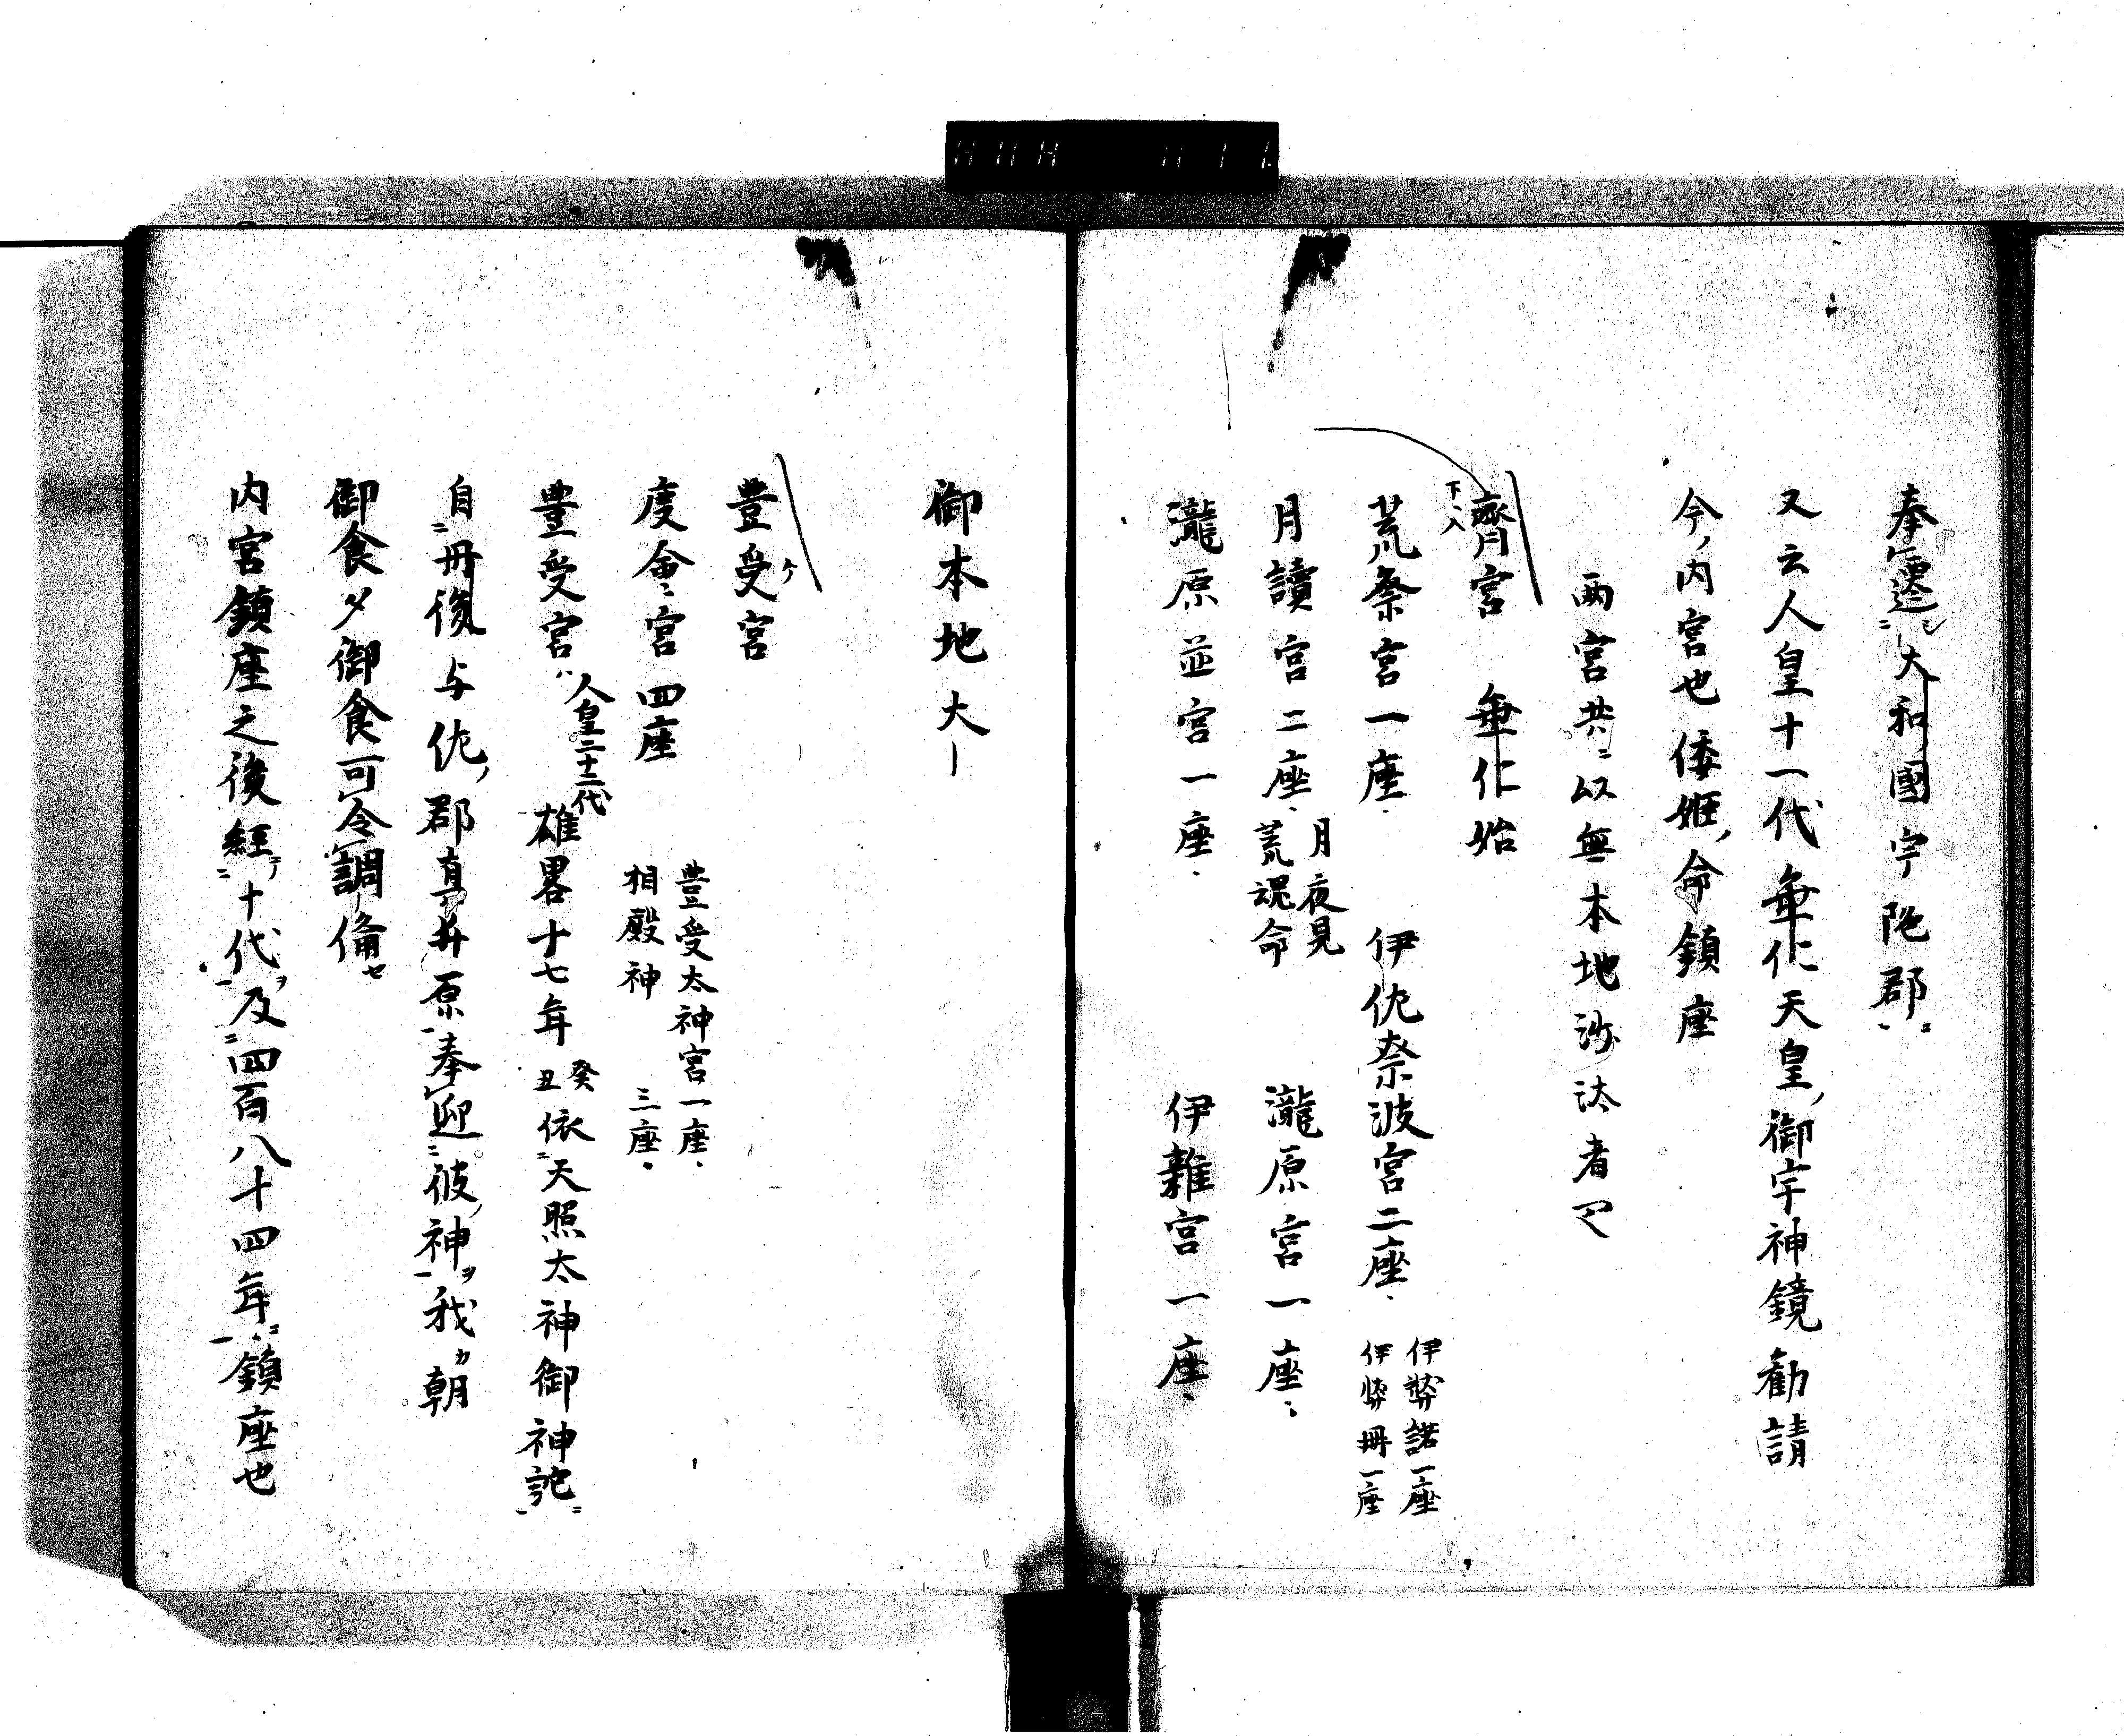 奉遷大和國宇陁郡
又云人皇十一代垂仁天皇御宇神鏡勸請
今内宮也倭姫命鎮座
両宮共以無本地沙汰者也
齊宮　垂仁始
下入
荒祭宮一座　伊佗奈波宮二座
伊弉諾一座
伊弉冊一座
月讀宮二座　瀧原宮一座
月夜見
荒魂命
瀧原並宮一座　伊雜宮一座
御本地大
豊受宮
度會宮四座
豊受太神宮一座
相殿神　三座
豊受宮　雄畧十七年　依天照太神御神詫
人皇二十二代
癸
丑
自丹後与佗郡真井原奉迎彼神我朝
御食夕御食可令調備
内宮鎮座之後經十代及四百八十四年鎮座也